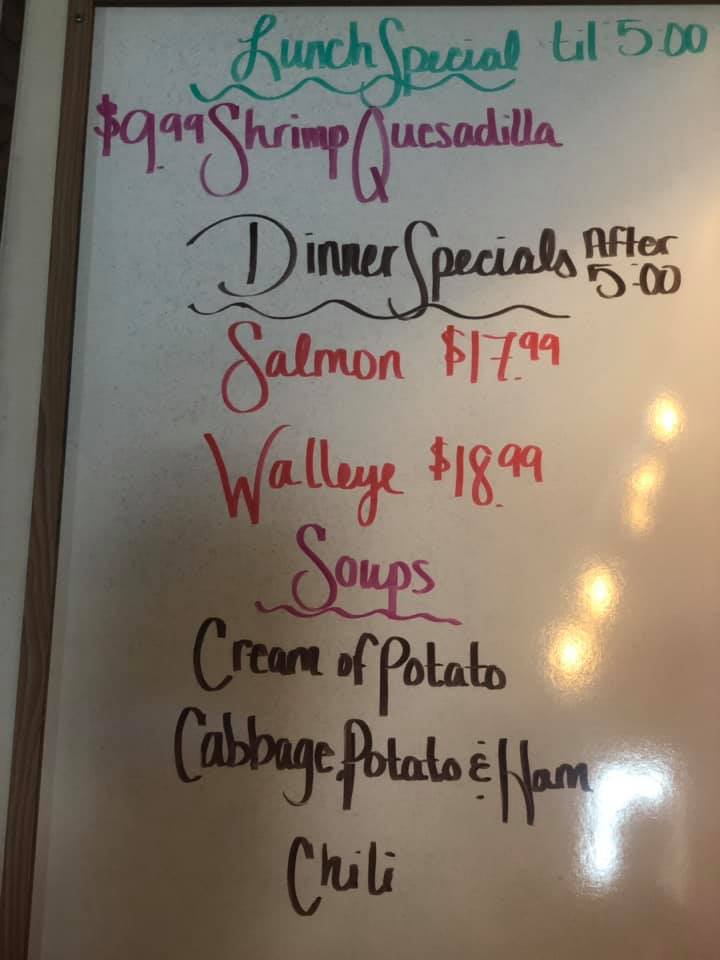 Lunch Special til 5:00
$9.99 Shrimp Quesadilla
Dinner Specials After 5:00
Salmon $17.99
Walleye $18.99
Soups
Cream of Potato
Cabbage, Potato & Ham
Chili